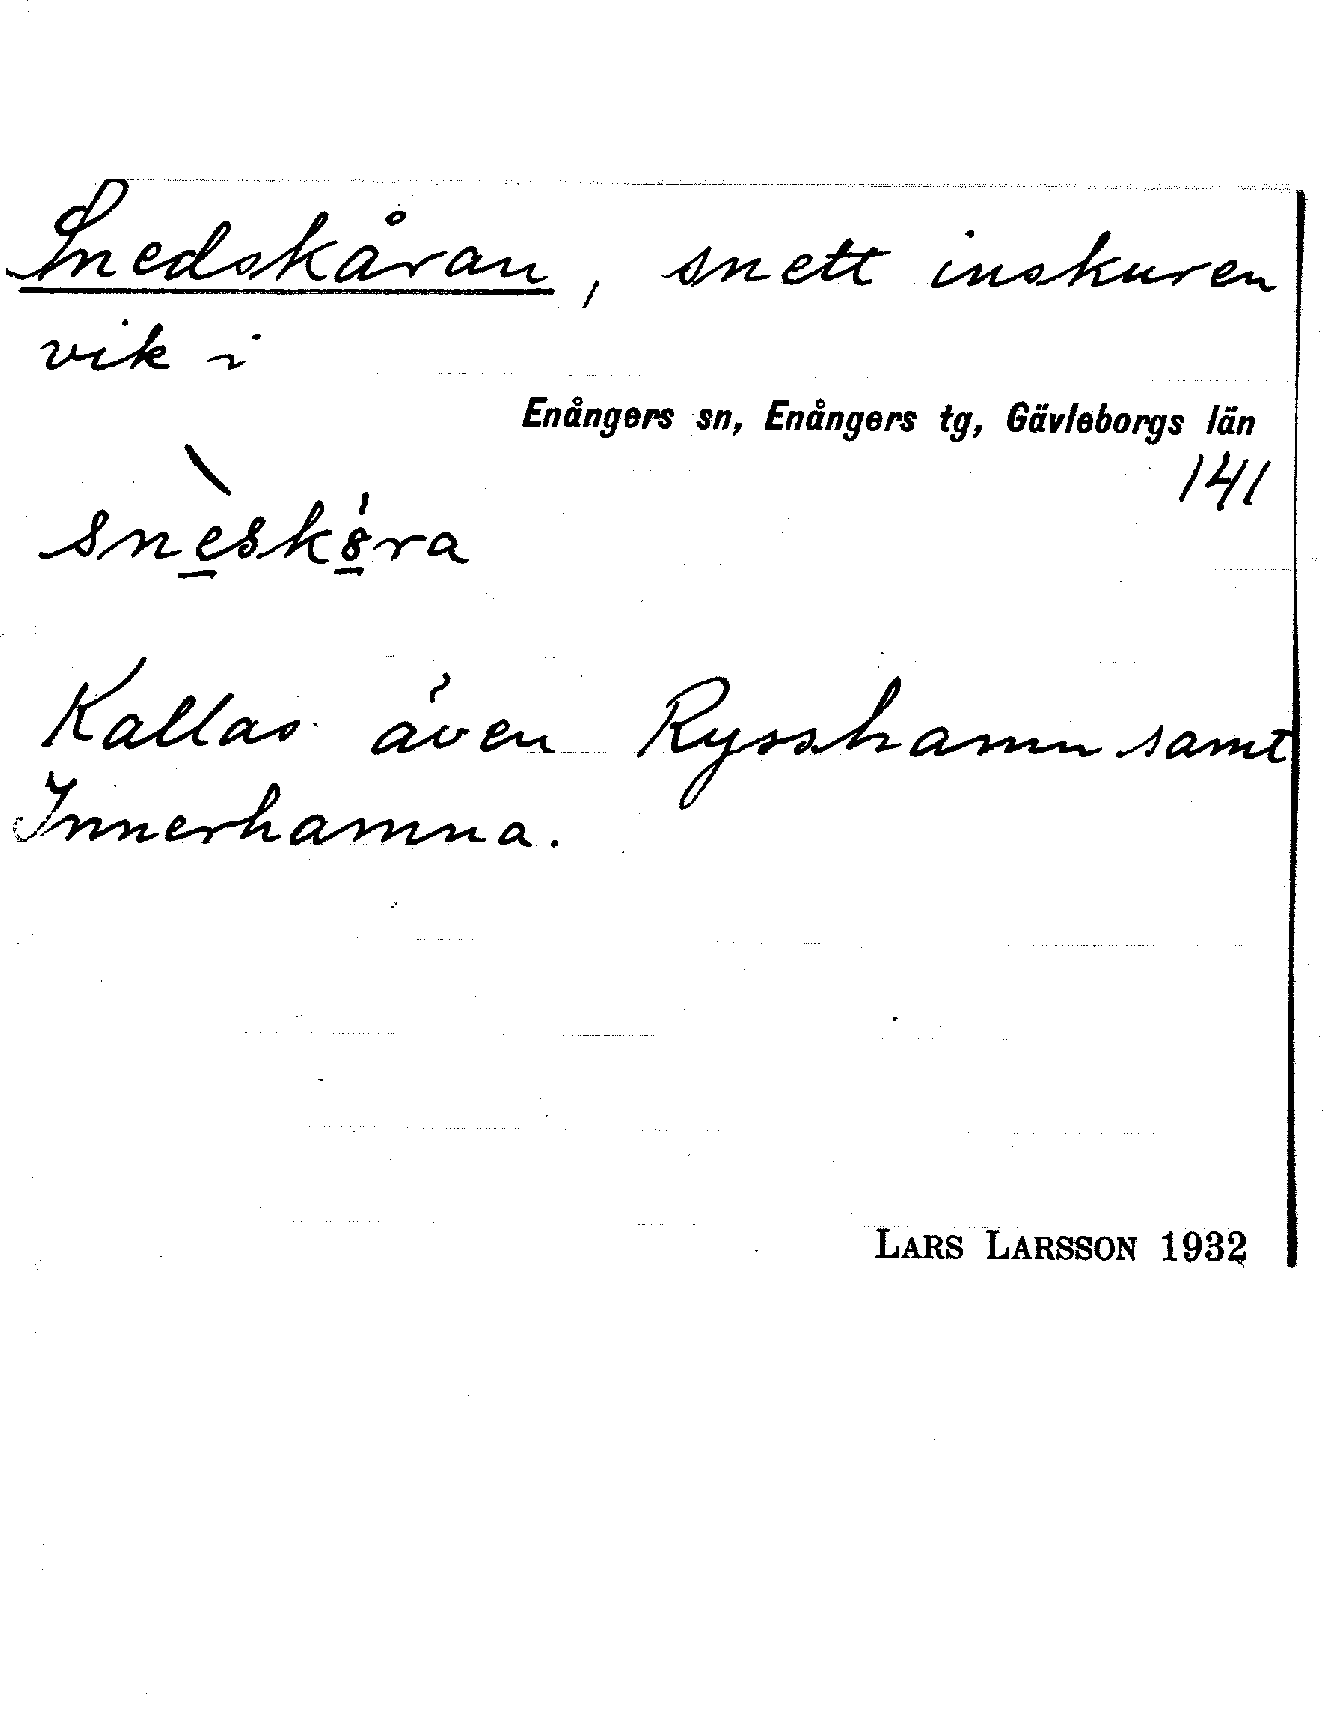 Snedskåran, snett inskuren
vik i
Enångers sn, Enångers tg, Gävleborgs län
141
snèsk8̲́ra
Kallas även Rysshamn samt
Innerhamna.
LARS LARSSON 1932